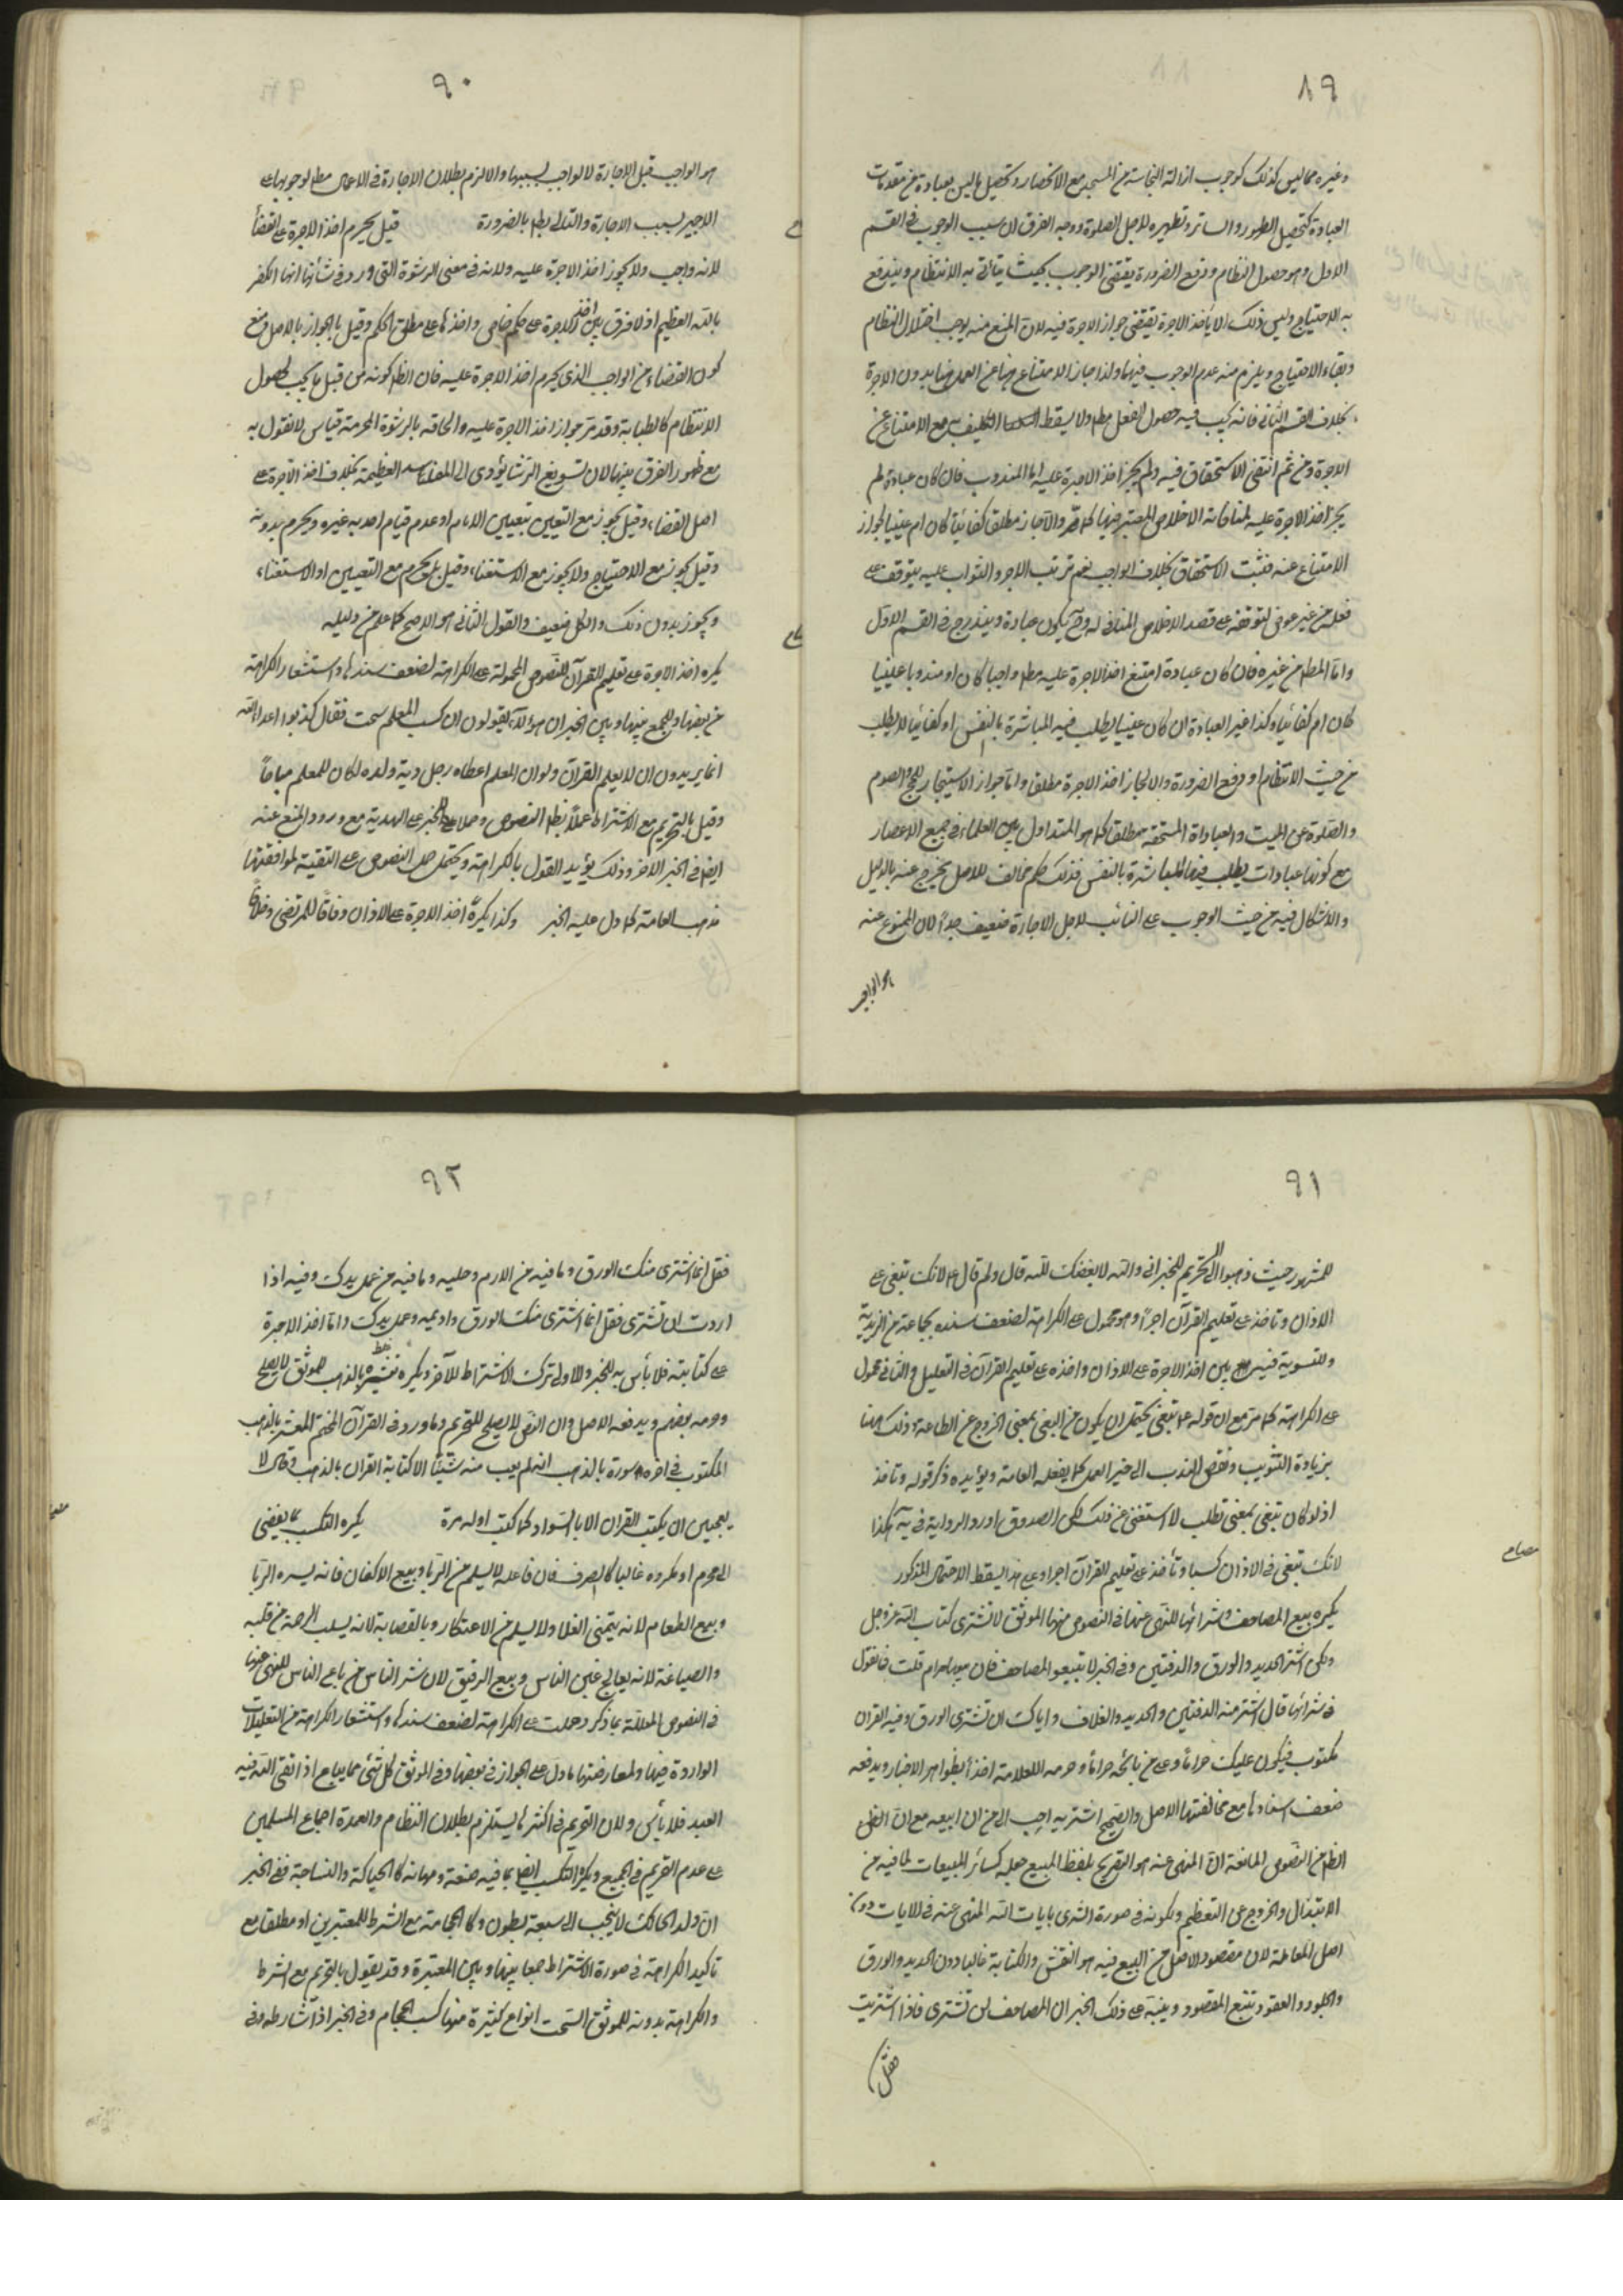 ٨٩
وغيره مما ليس كذلك كوجوب ازالة النجاسة عن المسجد مع الانحصار وتحصيل ما ليس بعبادة من مقدمات
العبادة كتحصيل الطهور والساتر وتطهيره لاجل الصلوة ووجه الفرق ان سبب الوجوب في القسم
الاول وهو حصول النظام ورفع الضرورة يقتضي الوجوب بحيث يتأتى به الانتظام ويندفع
به الاحتياج وليس ذلك الا بأخذ الاجرة يقتضي جواز الاجرة فيه لان المنع منه يوجب اختلال النظام
وبقاء الاحتياج ويلزم منه عدم الوجوب فيها ولذا جاز الامتناع فيها عن العمل فيها بدون الاجرة
بخلاف القسم الثاني فانه يجب فيه حصول الفعل مطلـ ولا يسقط التكليف به مع الامتناع عن
الاجرة ومن ثم انتفى الاستحقاق فيه ولم يجز اخذ الاجرة عليه اما المندوب فان كان عبادة لم
يجز اخذ الاجرة عليه لمنافاته الاخلاص المعتبر فيها كما مر والا جاز مطلقا كفائيا كان ام عينيا لجواز
الامتناع عنه فثبت الاستحقاق بخلاف الواجب نعم ترتب الاجر والثواب عليه يتوقف على
فعله من غير عوض لتوقفه على قصد الاخلاص المنافي له وح يكون عبادة ويندرج في القسم الاول
واما المطلـ من غيره فان كان عبادة امتنع اخذ الاجرة عليه مطلـ واجبا كان او مندوبا عينيا
كان ام كفائيا وكذا غير العبادة ان كان عينيا يطلب فيه المباشرة بالنفس او كفائيا لا يطلب
من حيث الانتظام او رفع الضرورة والا لجاز اخذ الاجرة مطلقا واما جواز الاستيجار للحج والصوم
والصلوة عن الميت والعبادات المستحبة مطلقا كما هو المتداول بين العلماء في جميع الاعصار
مع كونها عبادات يطلب فيها المباشرة بالنفس فذلك حكم مخالف للاصل يخرج عنه بالدليل
والاشكال فيه من حيث الوجوب على النائب لاجل الاجارة ضعيف جدا لان الممنوع عنه
هو الواجب
٩٠
هو الواجب قبل الاجارة لا الواجب بسببها والا لزم بطلان الاجارة في الاعمال مطلـ لوجوبها على
الاجير بسبب الاجارة والتالي بطـ بالضرورة قيل يحرم اخذ الاجرة على القضاء
لانه واجب ولا يجوز اخذ الاجرة عليه ولانه في معنى الرشوة التي ورد في شأنها انها الكفر
بالله العظيم اذ لا فرق بين اخذ الاجرة على حكم خاص واخذها على مطلق الحكم وقيل بالجواز بالاصل ومنع
كون القضاء من الواجب الذي يحرم اخذ الاجرة عليه فان الظـ كونه من قبل ما يجب لحصول
الانتظام كالطبابة وقد مر جواز اخذ الاجرة عليه والحاقه بالرشوة المحرمة قياس لا نقول به
مع ظهور الفرق بينهما لان تسويغ الرشا يؤدي الى المفاسد العظيمة بخلاف اخذ الاجرة على
اصل القضاء وقيل يجوز مع التعيين بتعيين الامام او عدم قيام احد به غيره ويحرم بدونه
وقيل يجوز مع الاحتياج ولا يجوز مع الاستغناء وقيل بل يحرم مع التعيين او الاستغناء
ويجوز بدون ذلك والكل ضعيف والقول الثاني هو الاصح كما علم من دليله
يكره اخذ الاجرة على تعليم القرآن للنصوص المحمولة على الكراهة لضعف سندها واستشعار الكراهة
من بعضها وللجمع بينها وبين الخبر ان هؤلاء يقولون ان كسب المعلم سحت فقال كذبوا اعداء الله
انما يريدون ان لا يعلم القرآن ولو ان المعلم اعطاه رجل دية ولده لكان للمعلم مباحا
وقيل بالتحريم مع الاشتراط عملا بظـ النصوص وحملا للخبر على الهدية مع ورود المنع عنه
ايضا في الخبر الاخر وذلك يؤيد القول بالكراهة ويحتمل حمل النصوص على التقية لموافقتها
مذهب العامة كما دل عليه الخبر وكذا يكره اخذ الاجرة على الاذان وفاقا للمرتضى وخلافا
٩١
للمشهور حيث ذهبوا الى التحريم للخبر اني والله لابغضك لله قال ولم قال ع لانك تبغي على
الاذان وتأخذ على تعليم القرآن اجرا وهو محمول على الكراهة لضعف سنده بجماعة من الزيدية
وللتسوية فيه بين اخذ الاجرة على الاذان واخذه على تعليم القرآن في التعليل والثاني محمول
على الكراهة كما مر مع ان قوله ع تبغي يحتمل ان يكون من البغي بمعنى الخروج عن الطاعة وذلك هنا
بزيادة التثويب ونقص الندب الى خير العمل كما يفعله العامة ويؤيده ذكر قوله وتأخذ
اذ لو كان تبغي بمعنى تطلب لاستغنى عن ذلك لكن الصدوق اورد الرواية في يه هكذا
لانك تبغي في الاذان كسبا وتأخذ على تعليم القرآن اجرا وعلى هذا يسقط الاحتمال المذكور
يكره بيع المصاحف وشرائها للنهي عنها في النصوص منها الموثق لا تشتري كتاب الله عز وجل
ولكن اشتر الحديد والورق والدفتين وفي الخبر لا تبيعوا المصاحف فان بيعها حرام قلت فما تقول
في شرائها قال اشتر منه الدفتين والحديد والغلاف واياك ان تشتري الورق وفيه القرآن
مكتوب فيكون عليك حراما وعلى من بائعه حراما وحرمه العلامة اخذا بظواهر الاخبار ويدفعه
ضعف اسنادها مع مخالفتها الاصل والصحيح اشتريه احب الي من ان ابيعه مع ان
الظـ من النصوص المانعة ان المنهي عنه هو التصريح بلفظ المبيع جعله كسائر المبيعات لما فيه من
الابتذال والخروج عن التعظيم ولكونه في صورة الشرى بايات الله المنهي عنه في الايات دون
اصل المعاملة لان مقصود الاصل من البيع فيه هو النقش والكتابة غالبا دون الحديد والورق
والجلود والعقود تتبع المقصود وينبه على ذلك الخبر ان المصاحف لن تشترى فاذا اشتريت
فقل
٩٢
فقل انما اشتري منك الورق وما فيه من الادم وحليه وما فيه من عمل يدك وفيه اذا
اردت ان تشتري فقل انما اشتري منك الورق واديمه وعمل يدك واما اخذ الاجرة
على كتابته فلا بأس به للخبر والاولى ترك الاشتراط للآخر ويكره تعشيره بالذهب للموثق لا يصلح
وحرمه بعضهم ويدفعه الاصل وان النص لا يصلح للتحريم وما ورد في القرآن المختم المعشر بالذهب
المكتوب في اخره سورة بالذهب انه لم يعب منه شيئا الا كتابة القران بالذهب وقال لا
يعجبني ان يكتب القران الا بالسواد كما كتب اول مرة يكره التكسب بما يفضي
الى محرم او مكروه غالبا كالصرف فان فاعله لا يسلم من الربا وبيع الاكفان فانه يسره الربا
وبيع الطعام لانه يتمنى الغلا ولا يسلم من الاحتكار وبالقصابة لانه يسلب الرحمة من قلبه
والصياغة لانه يعالج غبن الناس وبيع الرقيق لان شر الناس من باع الناس للنهي عنها
في النصوص المعللة بما ذكر وحملت على الكراهة لضعف سندها واستشعار الكراهة من التعليلات
الواردة فيها ولمعارضتها ما دل على الجواز في بعضها وفي الموثق كل شيء مما يباع اذا اتقى الله فيه
العبد فلا بأس ولان التحريم في اكثرها يستلزم بطلان النظام والعمدة اجماع المسلمين
على عدم التحريم في الجميع ويكره التكسب ايضا بما فيه ضعة ومهانة كالحياكة والنساجة ففي الخبر
ان ولد الحائك لا ينجب الى سبعة بطون وكالحجامة مع الشرط للمعتبرين او مطلقا مع
تأكيد الكراهة في صورة الاشتراط جمعا بينها وبين المعتبرة وقد يقول بالتحريم مع الشرط
والكراهة بدونه للموثق السحت انواع كثيرة منها كسب الحجام وفي الخبر اذا شارط وفي